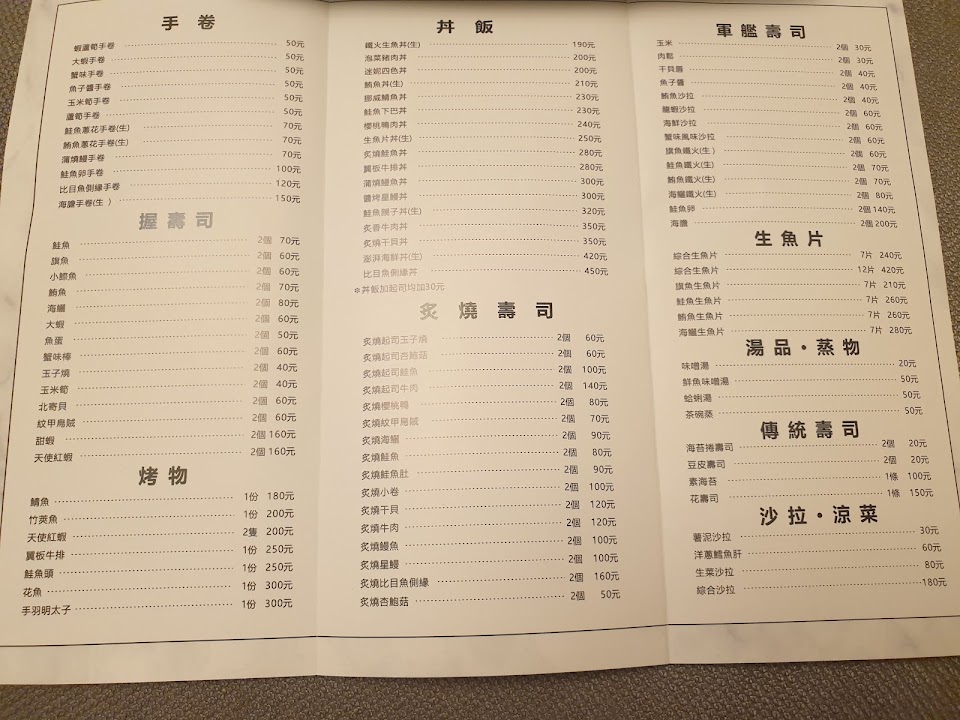 手卷
蝦蘆筍手卷 50元
大蝦手卷 50元
蟹味手卷 50元
魚子醬手卷 50元
玉米筍手卷 50元
蘆筍手卷 50元
鮭魚蔥花手卷(生) 70元
鮪魚蔥花手卷(生) 70元
蒲燒鰻手卷 70元
鮭魚卵手卷 100元
比目魚側緣手卷 120元
海膽手卷(生) 150元
握壽司
鮭魚 2個 70元
旗魚 2個 60元
小鰭魚 2個 60元
鮪魚 2個 70元
海鱺 2個 80元
大蝦 2個 60元
魚蛋 2個 50元
蟹味棒 2個 60元
玉子燒 2個 40元
玉米筍 2個 40元
北寄貝 2個 60元
紋甲烏賊 2個 60元
甜蝦 2個 160元
天使紅蝦 2個 160元
烤物
鯖魚 1份 180元
竹莢魚 1份 200元
天使紅蝦 2隻 200元
翼板牛排 1份 250元
鮭魚頭 1份 250元
花魚 1份 300元
手羽明太子 1份 300元
丼飯
鐵火生魚丼(生) 190元
泡菜豬肉丼 200元
迷妮四色丼 200元
鮪魚丼(生) 210元
挪威鯖魚丼 230元
鮭魚下巴丼 230元
櫻桃鴨肉丼 240元
生魚片丼(生) 250元
炙燒鮭魚丼 280元
翼板牛排丼 280元
蒲燒鰻魚丼 300元
醬烤星鰻丼 300元
鮭魚親子丼(生) 320元
炙香牛肉丼 350元
炙燒干貝丼 350元
澎湃海鮮丼(生) 420元
比目魚側緣丼 450元
※丼飯加起司均加30元
炙燒壽司
炙燒起司玉子燒 2個 60元
炙燒起司杏鮑菇 2個 60元
炙燒起司鮭魚 2個 100元
炙燒起司牛肉 2個 140元
炙燒櫻桃鴨 2個 80元
炙燒紋甲烏賊 2個 70元
炙燒海鱺 2個 90元
炙燒鮭魚 2個 80元
炙燒鮭魚肚 2個 90元
炙燒小卷 2個 100元
炙燒干貝 2個 120元
炙燒牛肉 2個 120元
炙燒鰻魚 2個 100元
炙燒星鰻 2個 100元
炙燒比目魚側緣 2個 160元
炙燒杏鮑菇 2個 50元
軍艦壽司
玉米 2個 30元
肉鬆 2個 30元
干貝唇 2個 40元
魚子醬 2個 40元
鮪魚沙拉 2個 40元
龍蝦沙拉 2個 60元
海鮮沙拉 2個 60元
蟹味風味沙拉 2個 60元
旗魚鐵火(生) 2個 60元
鮭魚鐵火(生) 2個 70元
鮪魚鐵火(生) 2個 70元
海鱺鐵火(生) 2個 80元
鮭魚卵 2個 140元
海膽 2個 200元
生魚片
綜合生魚片 7片 240元
綜合生魚片 12片 420元
旗魚生魚片 7片 210元
鮭魚生魚片 7片 260元
鮪魚生魚片 7片 260元
海鱺生魚片 7片 280元
湯品・蒸物
味噌湯 20元
鮮魚味噌湯 50元
蛤蜊湯 50元
茶碗蒸 50元
傳統壽司
海苔捲壽司 2個 20元
豆皮壽司 2個 20元
素海苔 1條 100元
花壽司 1條 150元
沙拉・涼菜
薯泥沙拉 30元
洋蔥鱈魚肝 60元
生菜沙拉 80元
綜合沙拉 180元